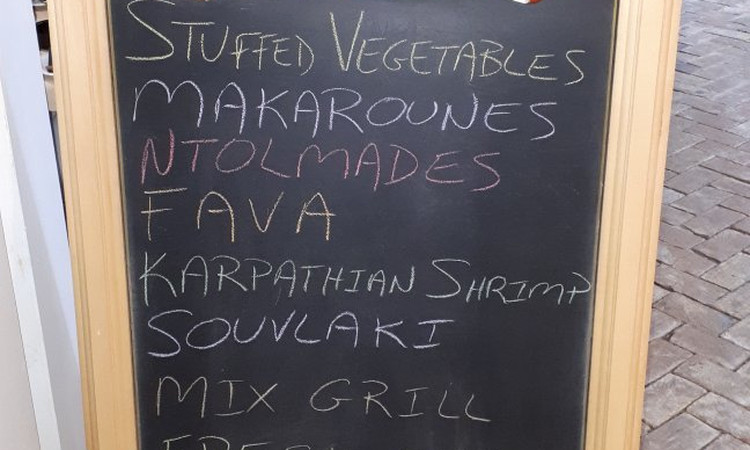 STUFFED VEGETABLES
MAKAROUNES
NTOLMADES
FAVA
KARPATHIAN SHRIMP
SOUVLAKI
MIX GRILL